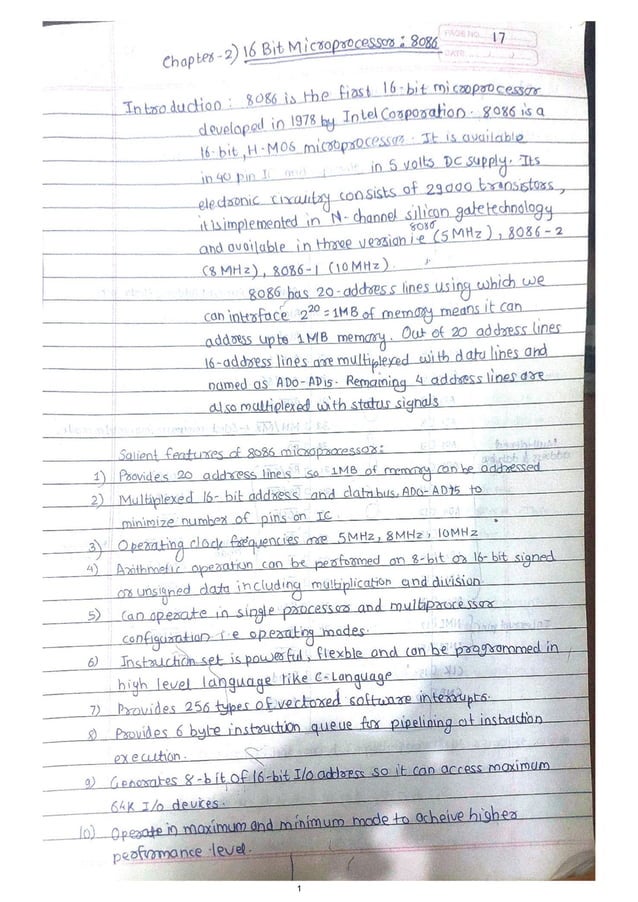 PAGE NO. 17
DATE
Chapter-2) 16 Bit Microprocessor: 8086
Introduction: 8086 is the first 16-bit microprocessor
developed in 1978 by Intel Corporation. 8086 is a
16-bit, H-MOS microprocessor. It is available
in 40 pin in 5 volts DC supply. Its
electronic circuitry consists of 29000 transistors,
it is implemented in N-channel silicon gate technology
and available in three version i.e 8086 (5MHz), 8086-2
(8 MHz), 8086-1 (10MHz).
8086 has 20-address lines using which we
can interface 2^20 = 1MB of memory means it can
address upto 1MB memory. Out of 20 address lines
16-address lines are multiplexed with data lines and
named as AD0-AD15. Remaining 4 address lines are
also multiplexed with status signals
Salient features of 8086 microprocessor:
1) Provides 20 address lines so 1MB of memory can be addressed
2) Multiplexed 16-bit address and databus, AD0-AD15 to
minimize number of pins on IC.
3) Operating clock frequencies are 5MHz, 8MHz, 10MHz
4) Arithmetic operation can be performed on 8-bit or 16-bit signed
or unsigned data including multiplication and division.
5) Can operate in single processor and multiprocessor
configuration i.e operating modes.
6) Instruction set is powerful, flexble and can be programmed in
high level language like C-Language
7) Provides 256 types of vectored software interrupts.
8) Provides 6 byte instruction queue for pipelining of instruction
execution.
9) Generates 8-bit of 16-bit I/o address so it can access maximum
64K I/o devices.
10) Operate in maximum and minimum mode to acheive higher
perfrmance level.
1